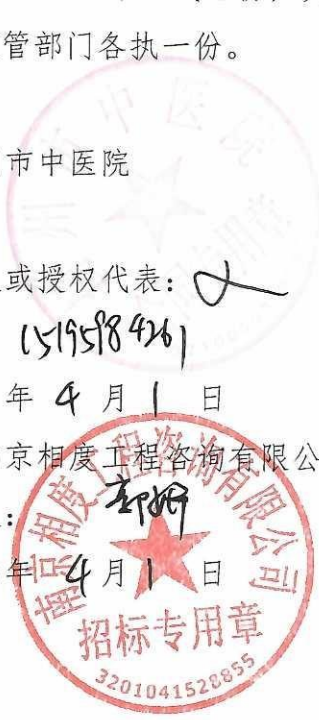 管部门各执一份。
市中医院
或授权代表:
15195984261
年 4 月 1 日
京相度工程咨询有限公
:
年 4 月 1 日
南京相度工程咨询有限公司
招标专用章
3201041528855